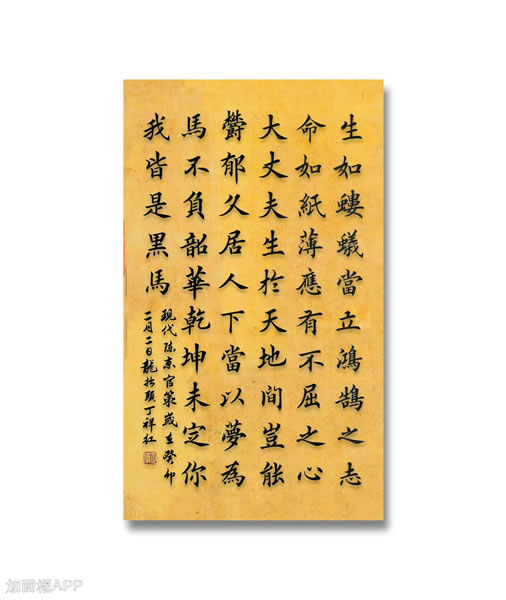 生如螻蟻當立鴻鵠之志
命如紙薄應有不屈之心
大丈夫生於天地間豈能
鬱郁久居人下當以夢為
馬不負韶華乾坤未定你
我皆是黑馬
現代陈京官策或在癸卯
二月二日龍抬頭丁祥红
加画框APP